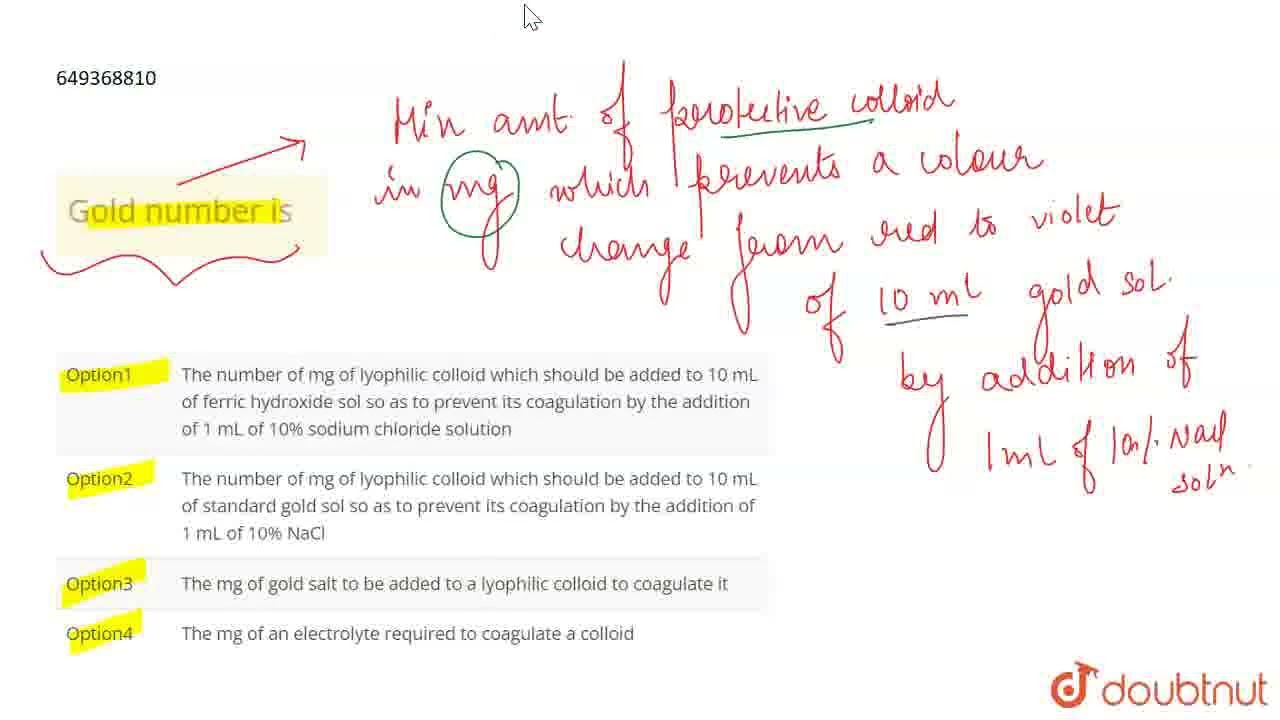 649368810
Min amt. of protective colloid
in mg which prevents a colour
Gold number is
change from red to violet
of 10 mL gold sol.
by addition of
1 mL of 10%. NaCl
soln.
Option1 The number of mg of lyophilic colloid which should be added to 10 mL
of ferric hydroxide sol so as to prevent its coagulation by the addition
of 1 mL of 10% sodium chloride solution
Option2 The number of mg of lyophilic colloid which should be added to 10 mL
of standard gold sol so as to prevent its coagulation by the addition of
1 mL of 10% NaCl
Option3 The mg of gold salt to be added to a lyophilic colloid to coagulate it
Option4 The mg of an electrolyte required to coagulate a colloid
doubtnut